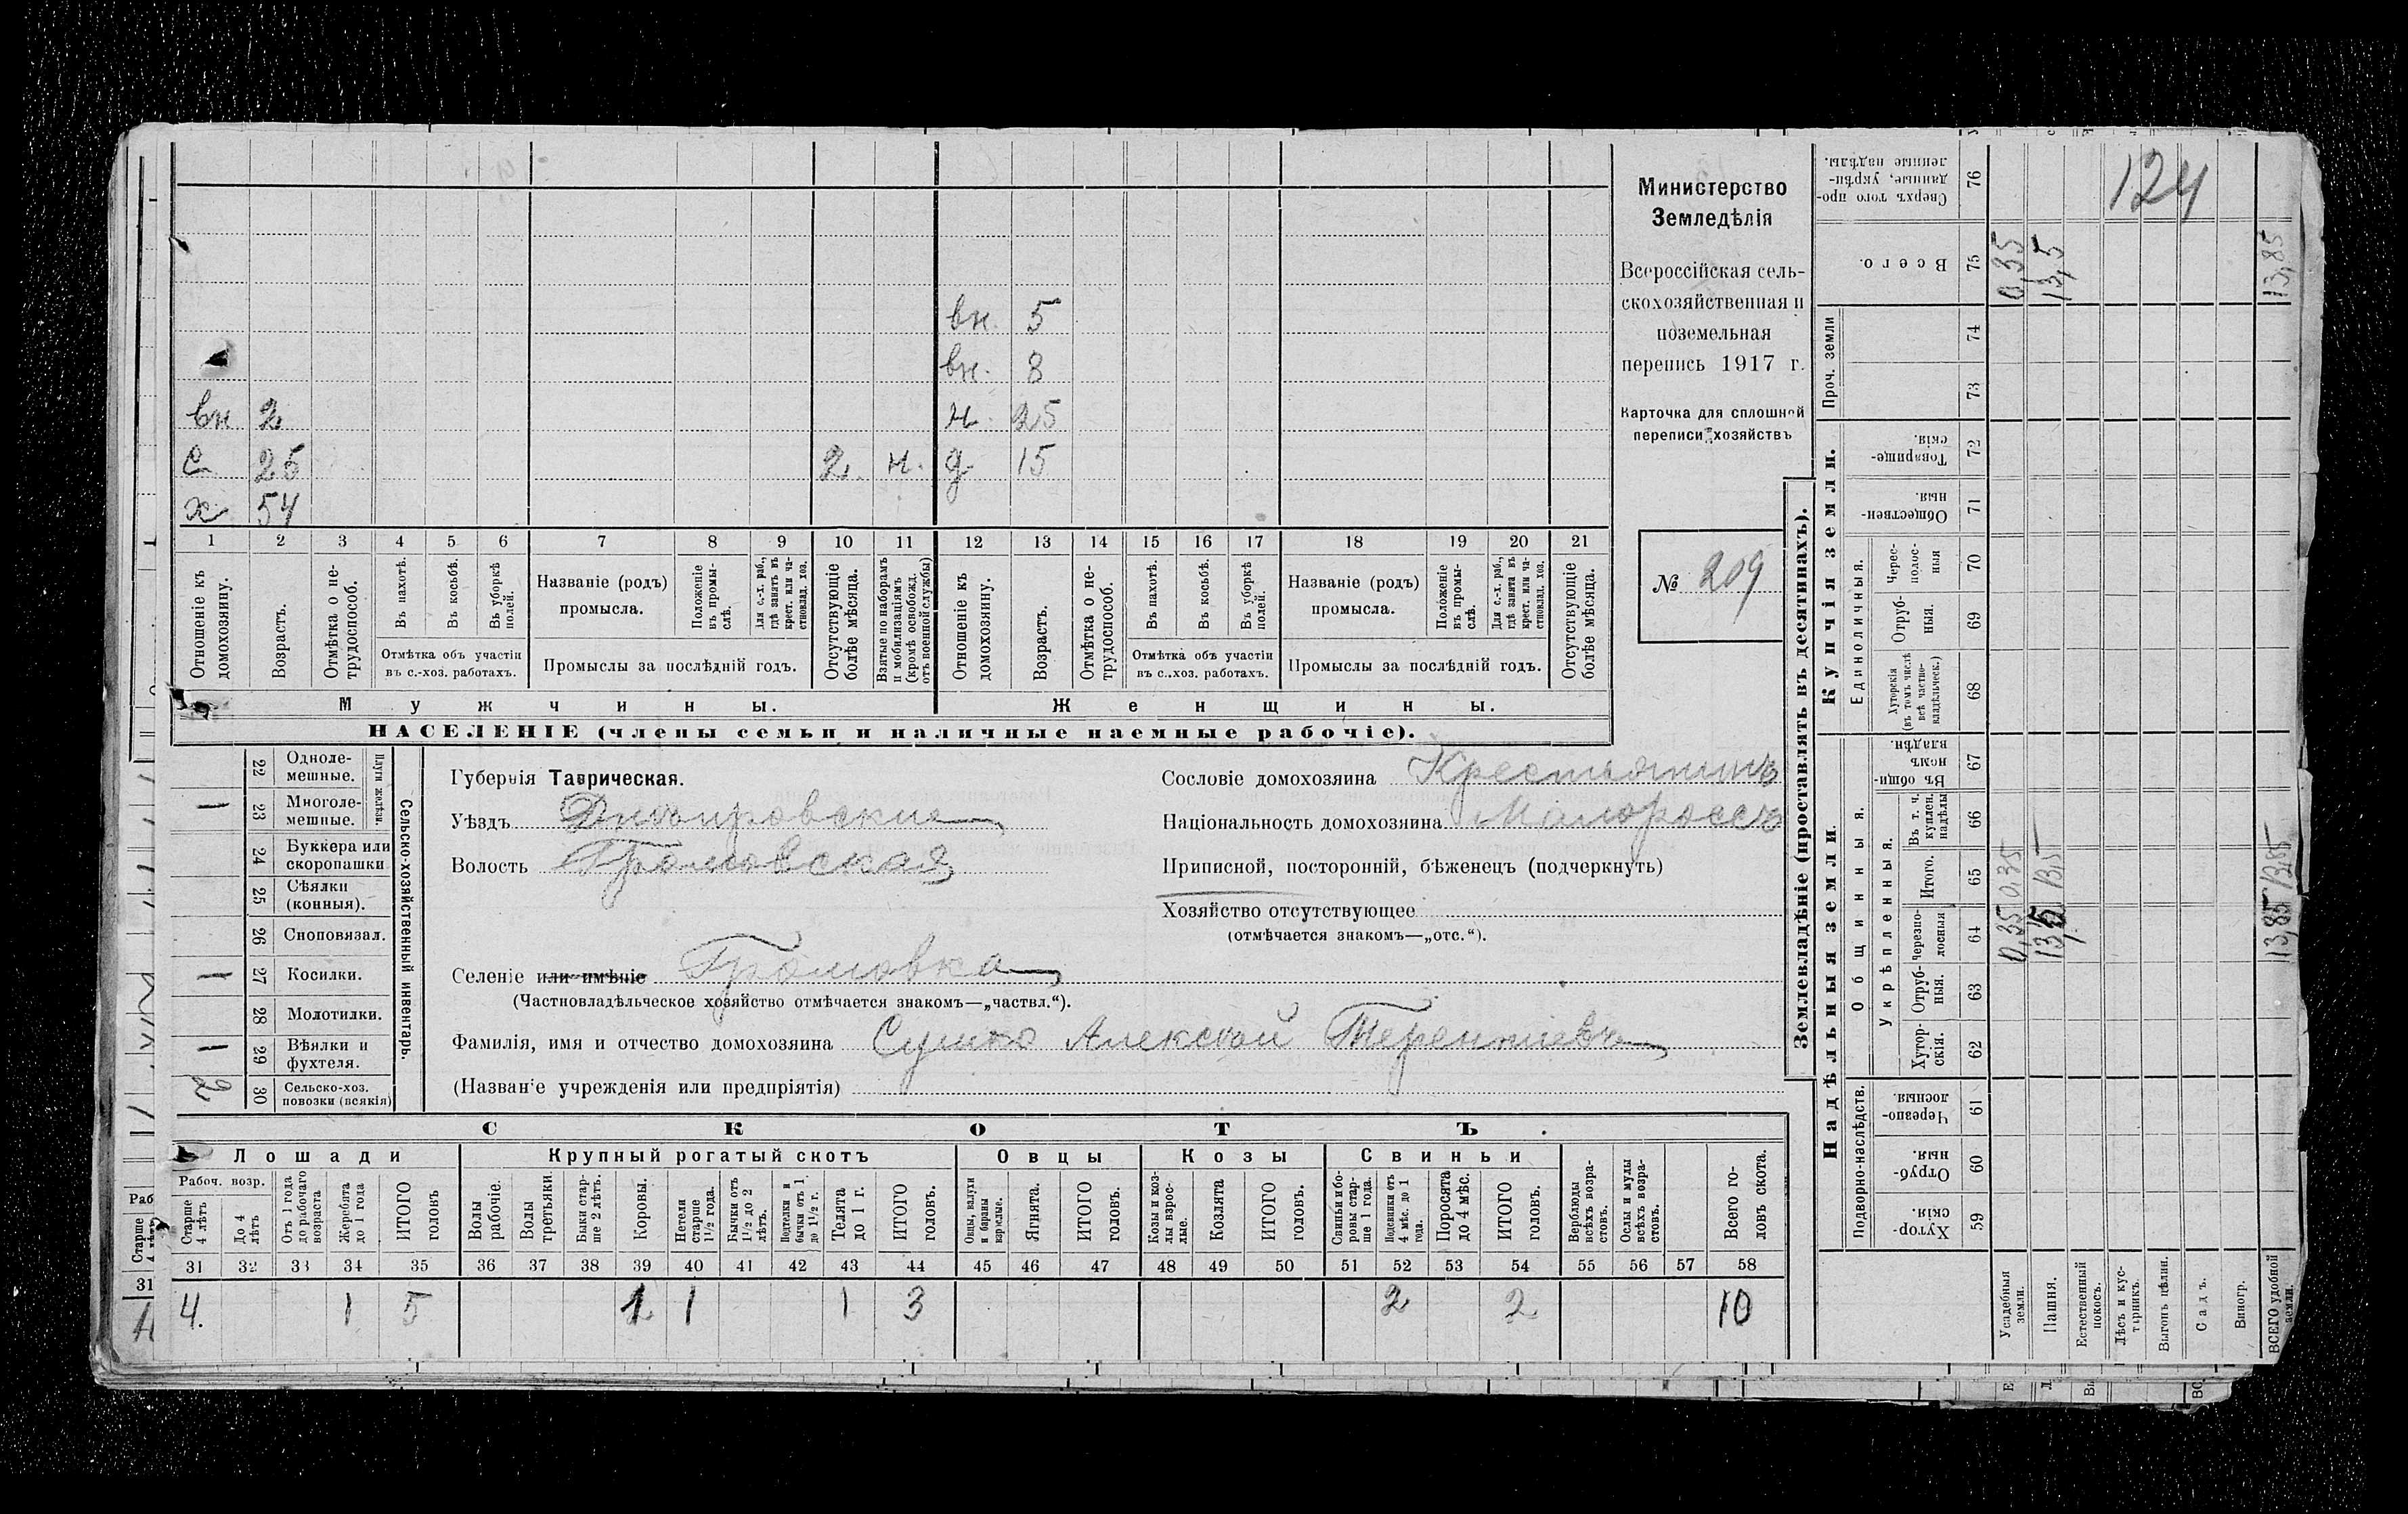 вн. 5
вн. 8
вн 2 н. 25
с 25 2. н. д 15
х 54
1 2 3 4 5 6 7 8 9 10 11 12 13 14 15 16 17 18 19 20 21
Отношеніе къ домохозяину.
Возрастъ.
Отмѣтка о нетрудоспособ.
Въ пахотѣ.
Въ косьбѣ.
Въ уборкѣ полей.
Отмѣтка объ участіи въ с.-хоз. работахъ.
Названіе (родъ) промысла.
Положеніе въ промыслѣ.
Для с.-х. раб., гдѣ занятъ въ крест. или частновлад. хоз.
Промыслы за послѣдній годъ.
Отсутствующіе болѣе мѣсяца.
Взятые по наборамъ и мобилизаціямъ (кромѣ освобожд. отъ военной службы)
Отношеніе къ домохозяину.
Возрастъ.
Отмѣтка о нетрудоспособ.
Въ пахотѣ.
Въ косьбѣ.
Въ уборкѣ полей.
Отмѣтка объ участіи въ с..хоз. работахъ.
Названіе (родъ) промысла.
Положеніе въ промыслѣ.
Для с.-х. раб., гдѣ занята въ крест. или частновлад. хоз.
Промыслы за послѣдній годъ.
Отсутствующіе болѣе мѣсяца.
Мужчины. Женщины.
НАСЕЛЕНІЕ (члены семьи и наличные наемные рабочіе).
Министерство
Земледѣлія
Всероссійская сель-
скохозяйственная и
поземельная
перепись 1917 г.
Карточка для сплошной
переписи хозяйствъ
№ 209
Сельско-хозяйственный инвентарь.
Плуги желѣзн.
22 Одноле-мешные.
1 23 Многоле-мешные.
24 Буккера или скоропашки
25 Сѣялки (конныя).
26 Сноповязал.
1 27 Косилки.
28 Молотилки.
1 29 Вѣялки и фухтеля.
2 30 Сельско-хоз. повозки (всякія)
Губернія Таврическая.
Уѣздъ Днѣпровскій
Волость Громовская
Сословіе домохозяина Крестьянинъ
Національность домохозяина Малороссъ
Приписной, посторонній, бѣженецъ (подчеркнуть)
Хозяйство отсутствующее
(отмѣчается знакомъ—„отс.“).
Селеніе или имѣніе Громовка
(Частновладѣльческое хозяйство отмѣчается знакомъ—„частвл.“).
Фамилія, имя и отчество домохозяина Сушко Алексѣй Терентіевъ
(Названіе учрежденія или предпріятія)
СКОТЪ.
Лошади Крупный рогатый скотъ Овцы Козы Свиньи
Рабоч. возр.
Старше 4 лѣтъ
До 4 лѣтъ
Отъ 1 года до рабочаго возраста
Жеребята до 1 года
ИТОГО головъ
Волы рабочіе.
Волы третьяки.
Быки старше 2 лѣтъ.
Коровы.
Нетели старше 1½ года.
Бычки отъ 1½ до 2 лѣтъ.
Подтелки и бычки отъ 1 до 1½ г.
Телята до 1 г.
ИТОГО головъ.
Овцы, валухи и бараны взрослые.
Ягнята.
ИТОГО головъ.
Козы и козлы взрослые.
Козлята
ИТОГО головъ.
Свиньи и боровы старше 1 года.
Подсвинки отъ 4 мѣс. до 1 года.
Поросята до 4 мѣс.
ИТОГО головъ.
Верблюды всѣхъ возрастовъ.
Ослы и мулы всѣхъ возрастовъ.
Всего головъ скота.
31 32 33 34 35 36 37 38 39 40 41 42 43 44 45 46 47 48 49 50 51 52 53 54 55 56 57 58
4. 1 5 1 1 1 3 2 2 10
Землевладѣніе (проставлять въ десятинахъ).
Надѣльныя земли. Купчія земли. Проч. земли
Подворно-наслѣдств.
Общинныя.
Укрѣпленныя.
Единоличныя.
59 Хуторскія.
60 Отрубныя.
61 Черезполосныя.
62 Хуторскія.
63 Отрубныя.
64 Черезполосныя
65 Итого.
66 Въ т. ч. куплен. надѣлы
67 Въ общинномъ владѣн.
68 Хуторскія (въ томъ числѣ всѣ частновладѣльческ.)
69 Отрубныя.
70 Череcполосныя
71 Общественныя.
72 Товарищескія.
73
74
75 Всего.
76 Сверхъ того проданные, укрѣпленные надѣлы.
124
Усадебныя земли. 0,35 0,35 0,35
Пашня. 13,5 13,5 13,5
Естественный покосъ.
Лѣсъ и кустарникъ.
Выгонъ цѣлин.
Садъ.
Виногр.
ВСЕГО удобной земли. 13,85 13,85 13,85
Раб
Старше
31